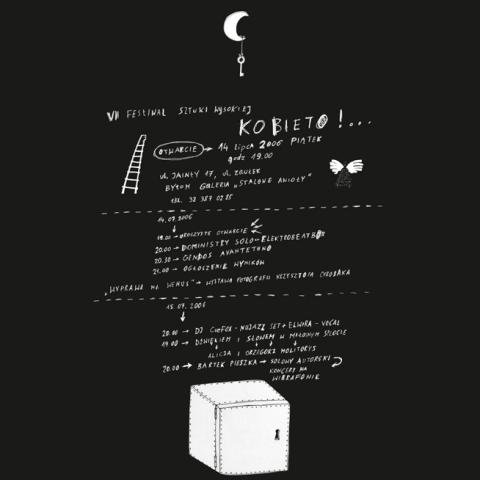 VII FESTIWAL SZTUKI WYSOKIEJ
KOBIETO!...
OTWARCIE → 14 lipca 2006 PIĄTEK
godz 19.00
UL. JAINTY 17, UL. ZAUŁEK
BYTOM GALERIA „STALOWE ANIOŁY"
tel. 32 387 02 85
14.07.2006
19.00 → UROCZYSTE OTWARCIE
20.00 → DOMINISTRY SOLO - ELEKTROBEATBOX
20.30 → GENDOS AVANTETONO
21.00 → OGŁOSZENIE WYNIKÓW
„WYPRAWA NA WENUS" → WYSTAWA FOTOGRAFII KRZYSZTOFA
15.07.2006
20.00 → DJ - NUJAZZ SET + ELWIRA - VOCAL
19.00 → DŹWIĘKIEM I SŁOWEM W
ALICJA I GRZEGORZ MOLITORYS
20.00 → BARTEK PIESZKA → SOLOWY AUTORSKI
KONCERT NA
WIBRAFONIE